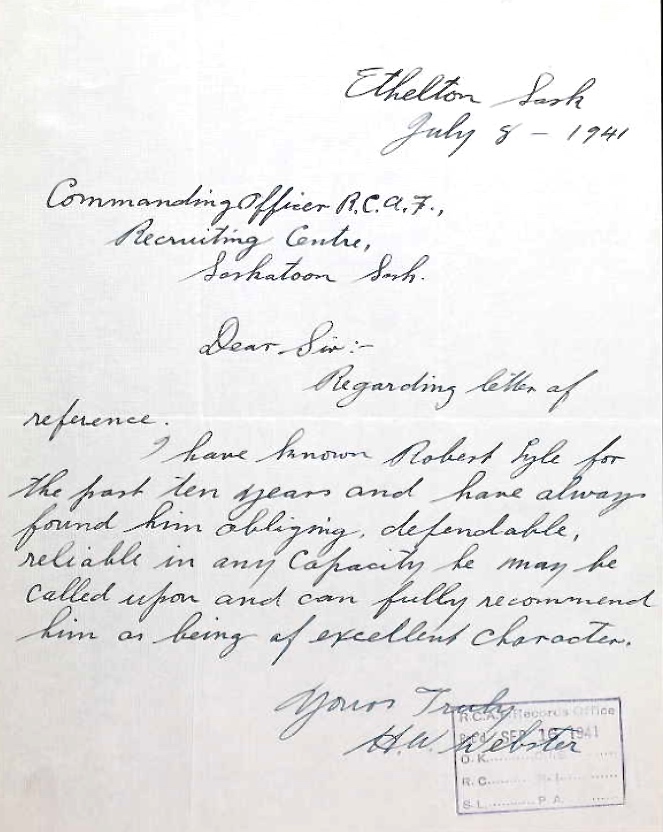 Ethelton Sask
July 8 - 1941
Commanding Officer R.C.A.F.,
Recruiting Centre,
Saskatoon Sask.
Dear Sir:-
Regarding letter of
reference.
I have known Robert Lyle for
the past ten years and have always
found him obliging, dependable,
reliable in any capacity he may be
called upon and can fully recommend
him as being of excellent character.
Yours Truly
H.W. Webster
R.C.A.F. Records Office
Rec'd SEP 16 1941
O.K.
R.C.
S.L. P.A.